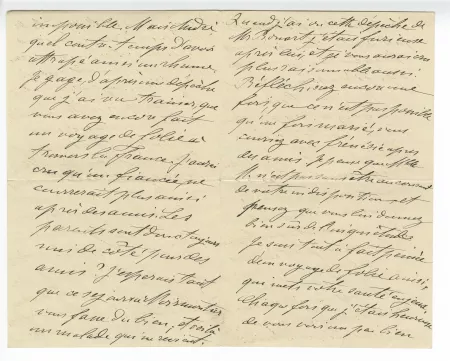 impossible. Mon André
quel contretemps d'avoir
attrapé ainsi un rhume.
Je gage, d'après une dépêche
que j'ai vu trainer, que
vous avez encore fait
un voyage de folie à
travers la France. J'aurais
cru qu'un fiancé ne
courrerait plus ainsi
après des amis. Les
parents sont donc toujours
mis de côté pour des
amis? J'espérais tant
que ce séjour à
vous fasse du bien, et voilà
un malade qui me revient.
Quand j'ai vu cette dépêche de
Mr j'étais furieuse
après lui, et je vous aurais en
plus raisonnable aussi.
Réfléchissez encore une
fois que ce n'est pas possible
qu'une fois marié, vous
couriez avec frénésie après
des amis. Je pense que Mlle
n'est pas au courant
de votre indisposition et
pensez que vous lui donnez
bien sûr de l'inquiétude.
Je suis tout à fait peinée
de ce voyage de folie ainsi,
qui mets votre santé en jeu,
chaque fois que j'étais heureuse
de vous voir un peu bien